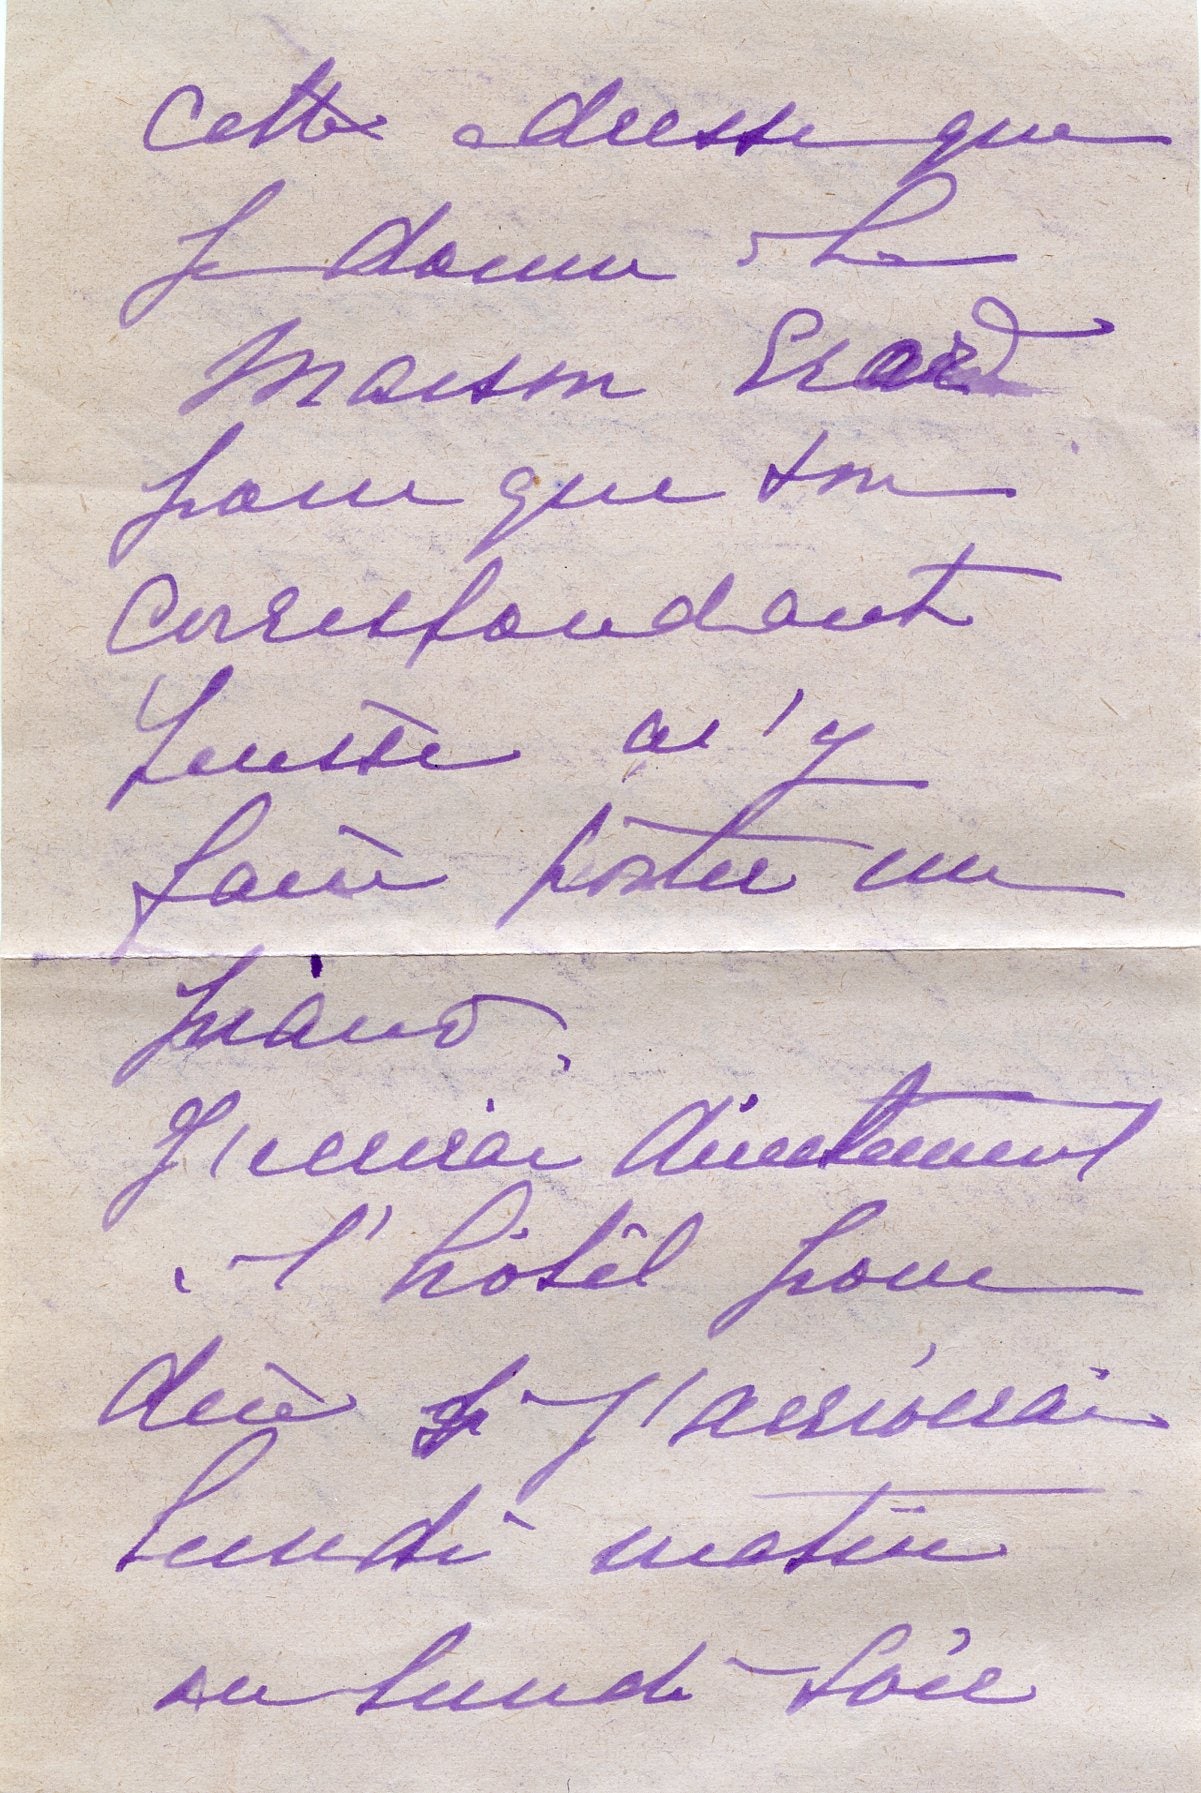 cette adresse que
je donne à la
Maison Erard
pour que son
correspondant
puisse m'y
faire porter un
piano.
J'écrirai directement
à l'hôtel pour
dire si j'arriverai
lundi matin
ou lundi soir